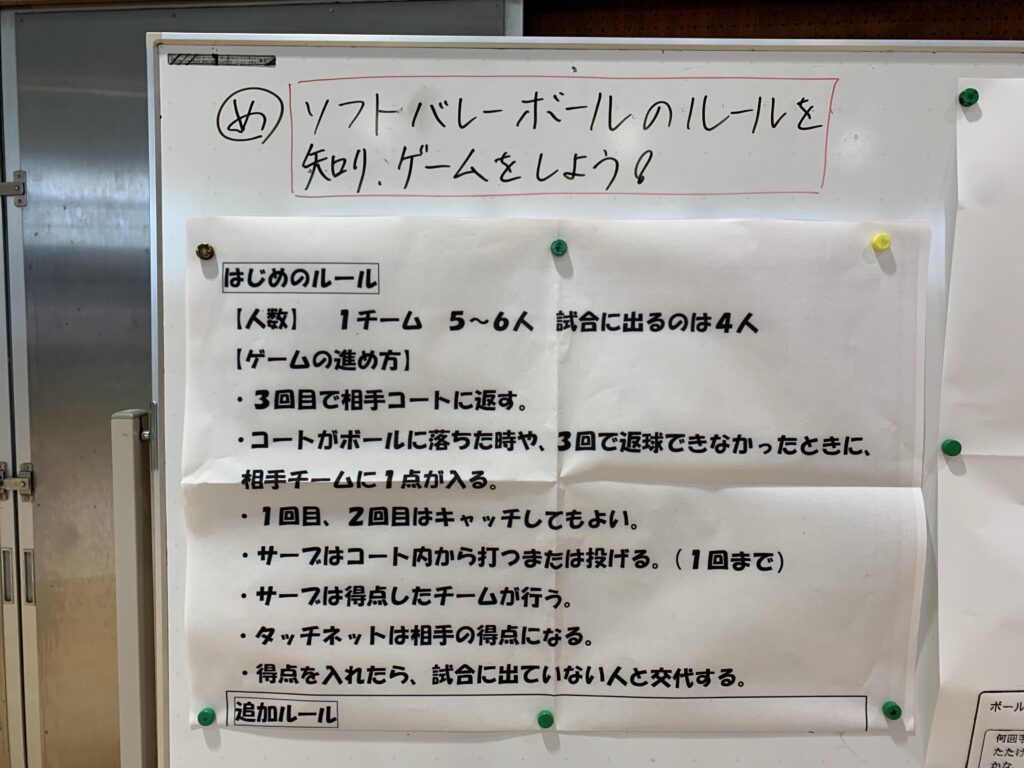 め ソフトバレーボールのルールを
知り、ゲームをしよう!
はじめのルール
【人数】 1チーム 5~6人 試合に出るのは4人
【ゲームの進め方】
・3回目で相手コートに返す。
・コートがボールに落ちた時や、3回で返球できなかったときに、
相手チームに1点が入る。
・1回目、2回目はキャッチしてもよい。
・サーブはコート内から打つまたは投げる。(1回まで)
・サーブは得点したチームが行う。
・タッチネットは相手の得点になる。
・得点を入れたら、試合に出ていない人と交代する。
追加ルール
ボール
何回手
たたけ
かな